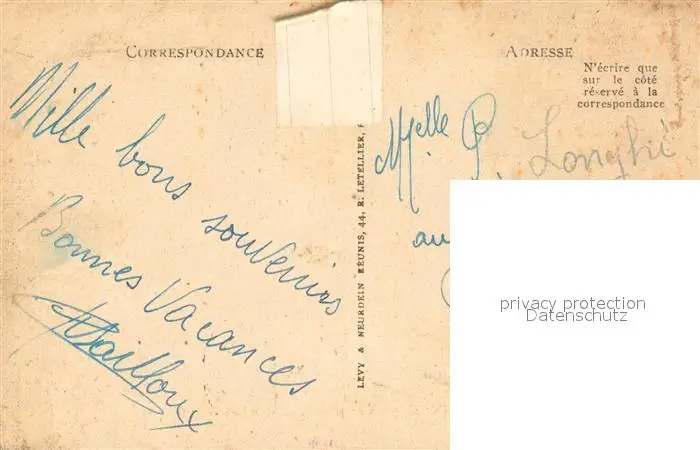 CORRESPONDANCE
Mille bons souvenirs
Bonnes Vacances
LEVY & NEURDEIN RÉUNIS, 44, R. LETELLIER,
ADRESSE
N'écrire que
sur le côté
réservé à la
correspondance
Melle
au
privacy protection
Datenschutz